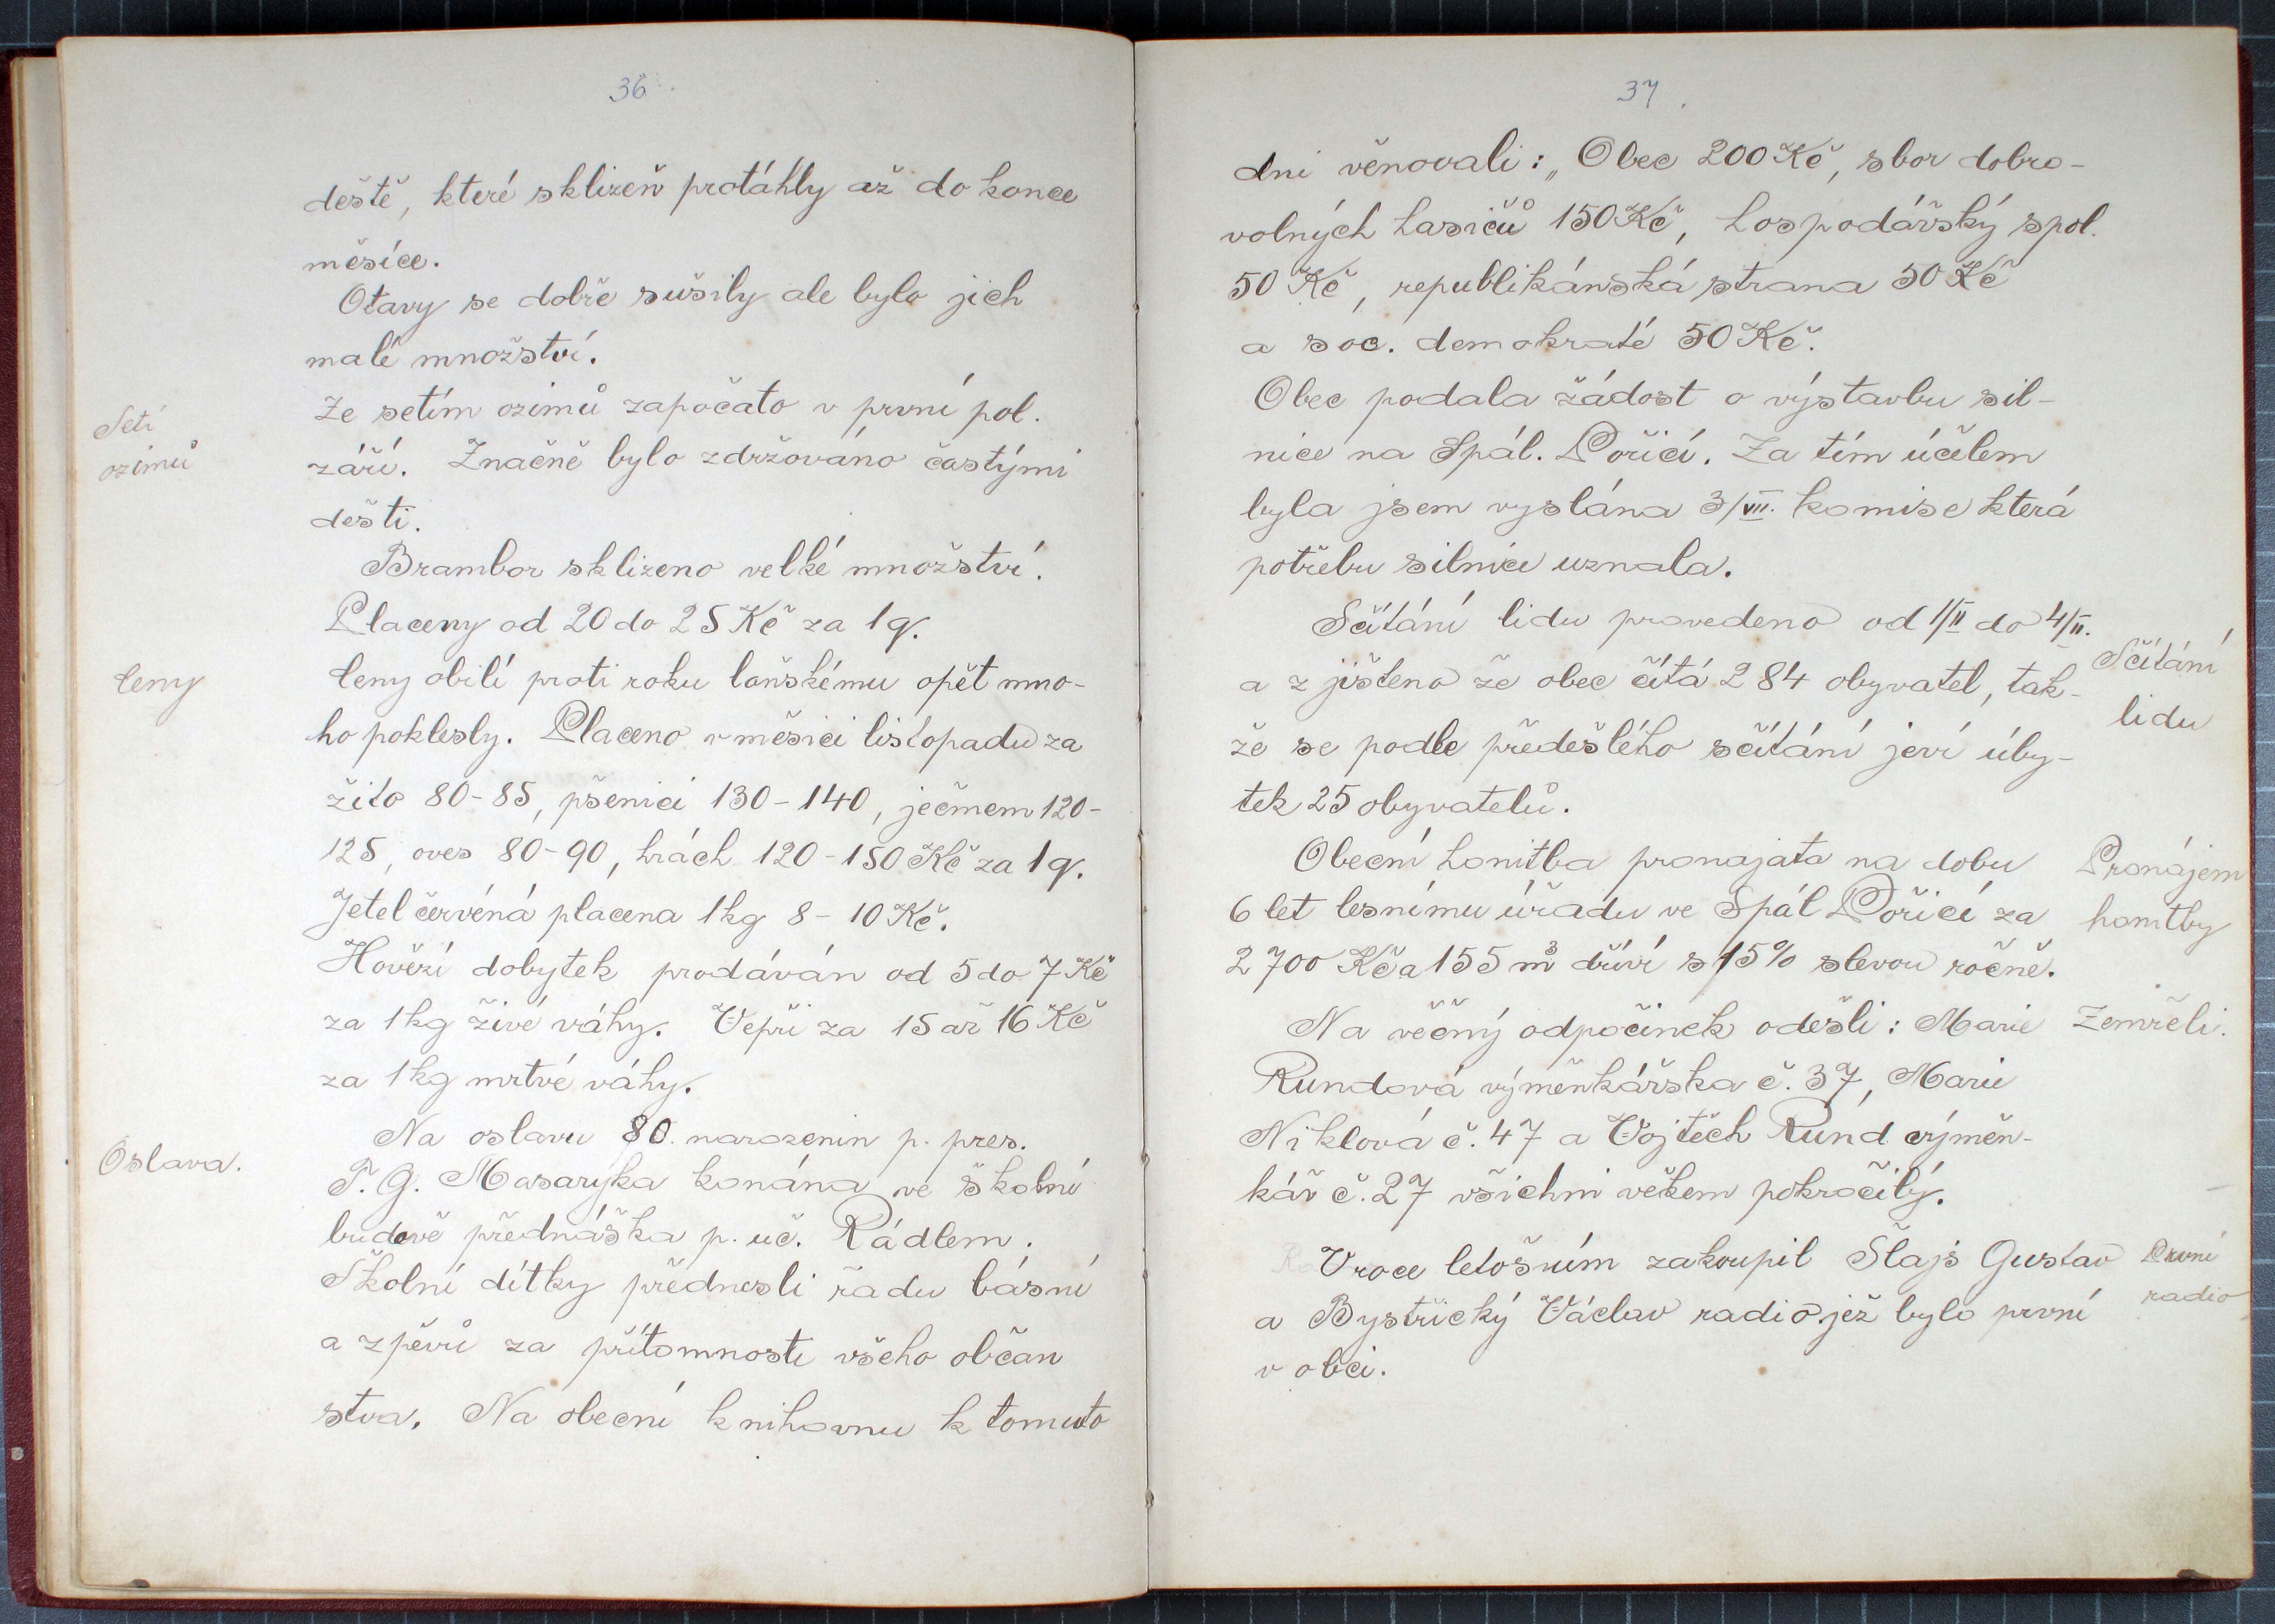 36.
deště, které sklizeň protáhly až do konce
měsíce.
Otavy se dobře sušily ale bylo jich
malé množství.
Setí
ozimů
Ze setím ozimů započato v první pol.
září. Značně bylo zdržováno častými
dešti.
Brambor sklizeno velké množství.
Placeny od 20 do 25 Kč za 1 q.
Ceny
Ceny obilí proti roku loňskému opět mno-
ho poklesly. Placeno v měsíci listopadu za
žito 80-85, pšenici 130-140, ječmem 120-
125, oves 80-90, hrách 120-150 Kč za 1 q.
Jetel červéná placena 1 kg 8-10 Kč.
Hovězí dobytek prodáván od 5 do 7 Kč
za 1 kg živé váhy. Vepři za 15 až 16 Kč
za 1 kg mrtvé váhy.
Oslava.
Na oslavu 80. narozenin p. pres.
T. G. Masaryka konána ve školní
budově přednáška p. uč. Rádlem.
Školní dítky přednesli řadu básní
a zpěvů za přítomnosti všeho občan
stva. Na obecní knihovnu k tomuto
37.
dni věnovali: „Obec 200 Kč, sbor dobro-
volných hasičů 150 Kč, hospodářský spol.
50 Kč, republikánská strana 50 Kč
a soc. demokraté 50 Kč.
Obec podala žádost o výstavbu sil-
nice na Spál. Poříčí. Za tím účelem
byla jsem vyslána 3/VII. komise která
potřebu silnice uznala.
Sčítání lidu provedeno od 1/II do 4/II.
Sčítání
lidu
a zjišteno že obec čítá 284 obyvatel, tak-
že se podle předešlého sčítání jeví úby-
tek 25 obyvatelů.
Obecní honitba pronajata na dobu
Pronájem
honitby
6 let lesnímu úřadu ve Spál Poříčí za
2700 Kč a 155 m³ dříví s 15% slevou ročně.
Na věčný odpočinek odešli: Marie
Zemřeli.
Rundová výměnkářska č. 37, Marie
Niklová č. 47 a Vojtěch Rund výměn-
kář č. 27 všichni věkem pokročilý.
V roce letošním zakoupil Šlajs Gustav
První
radio
a Bystřický Václav radio jež bylo první
v obci.